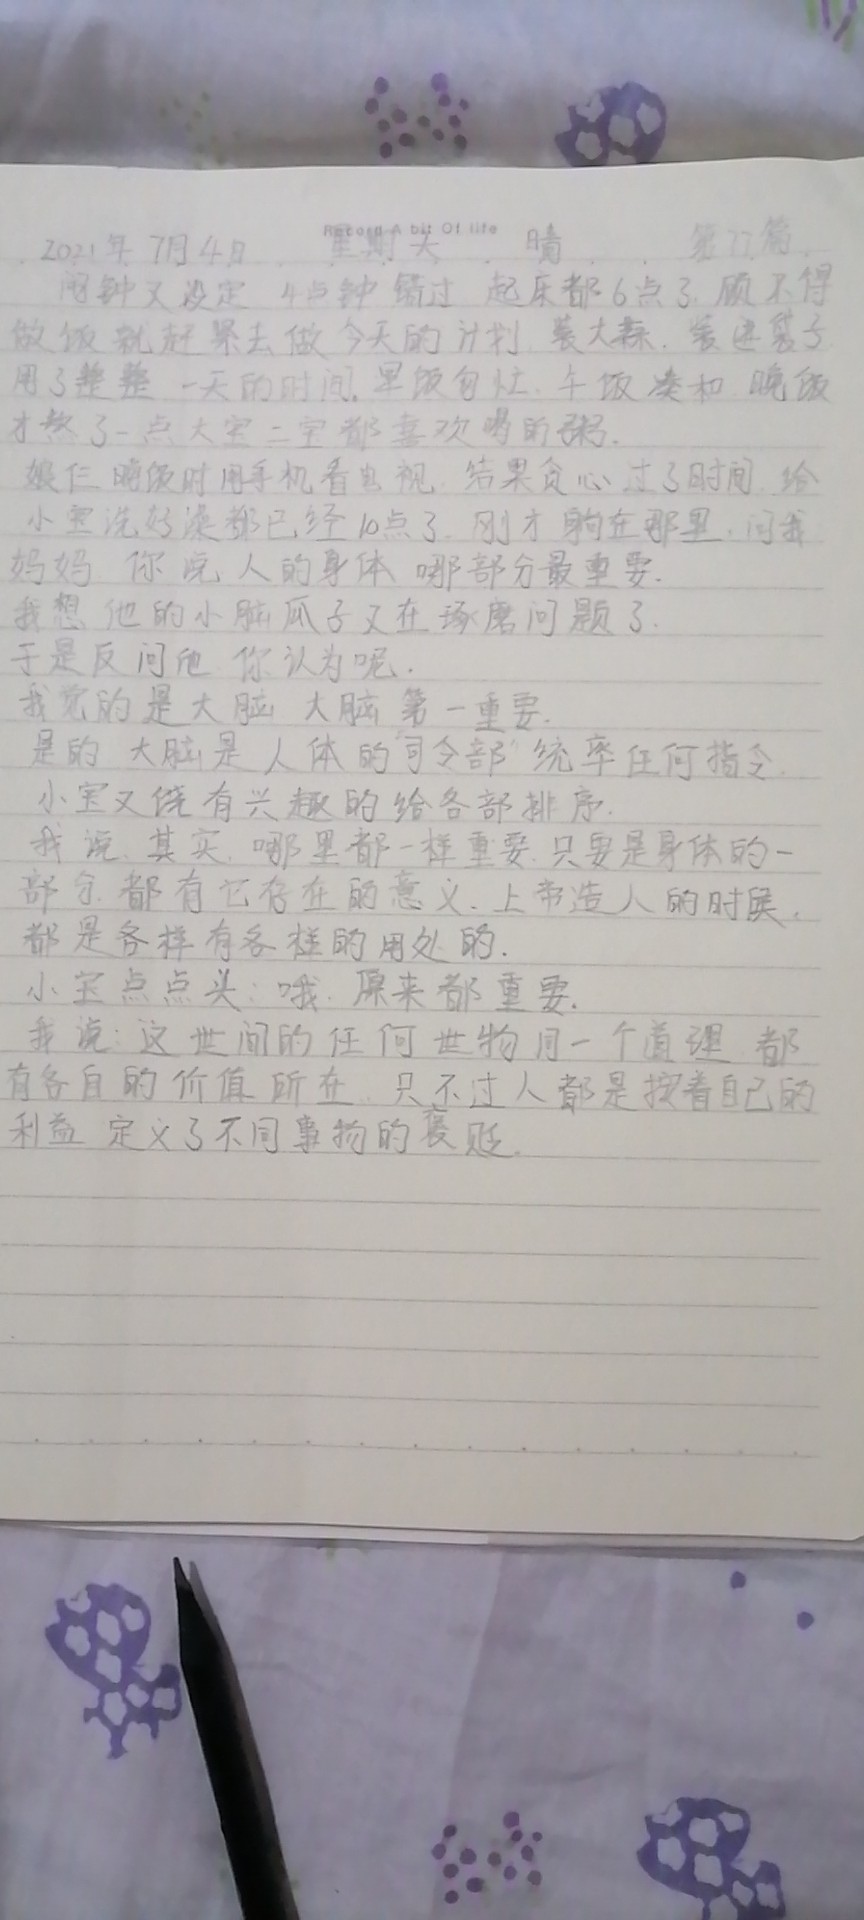 Record A bit Of life
2021年 7月4日 星期天 晴 第77篇
闹钟又设定 4点钟 错过 起床都6点了.顾不得
做饭就赶紧去做今天的计划.装大蒜.装进袋子
用了整整一天的时间.早饭自忙.午饭凑和.晚饭
才熬了一点大宝二宝都喜欢喝的粥.
娘仨晚饭时用手机看电视.结果贪心过了时间.给
小宝洗好澡都已经10点了.刚才躺在那里.问我
妈妈.你说人的身体 哪部分最重要.
我想他的小脑瓜子又在琢磨问题了.
于是反问他 你认为呢.
我觉的是大脑 大脑第一重要.
是的 大脑是人体的"司令部"统率任何指令.
小宝又饶有兴趣的给各部排序.
我说.其实.哪里都一样重要.只要是身体的一
部分.都有它存在的意义.上帝造人的时候.
都是各样有各样的用处的.
小宝点点头:哦.原来都重要.
我说:这世间的任何世物同一个道理 都
有各自的价值所在.只不过人都是按着自己的
利益 定义了不同事物的褒贬.